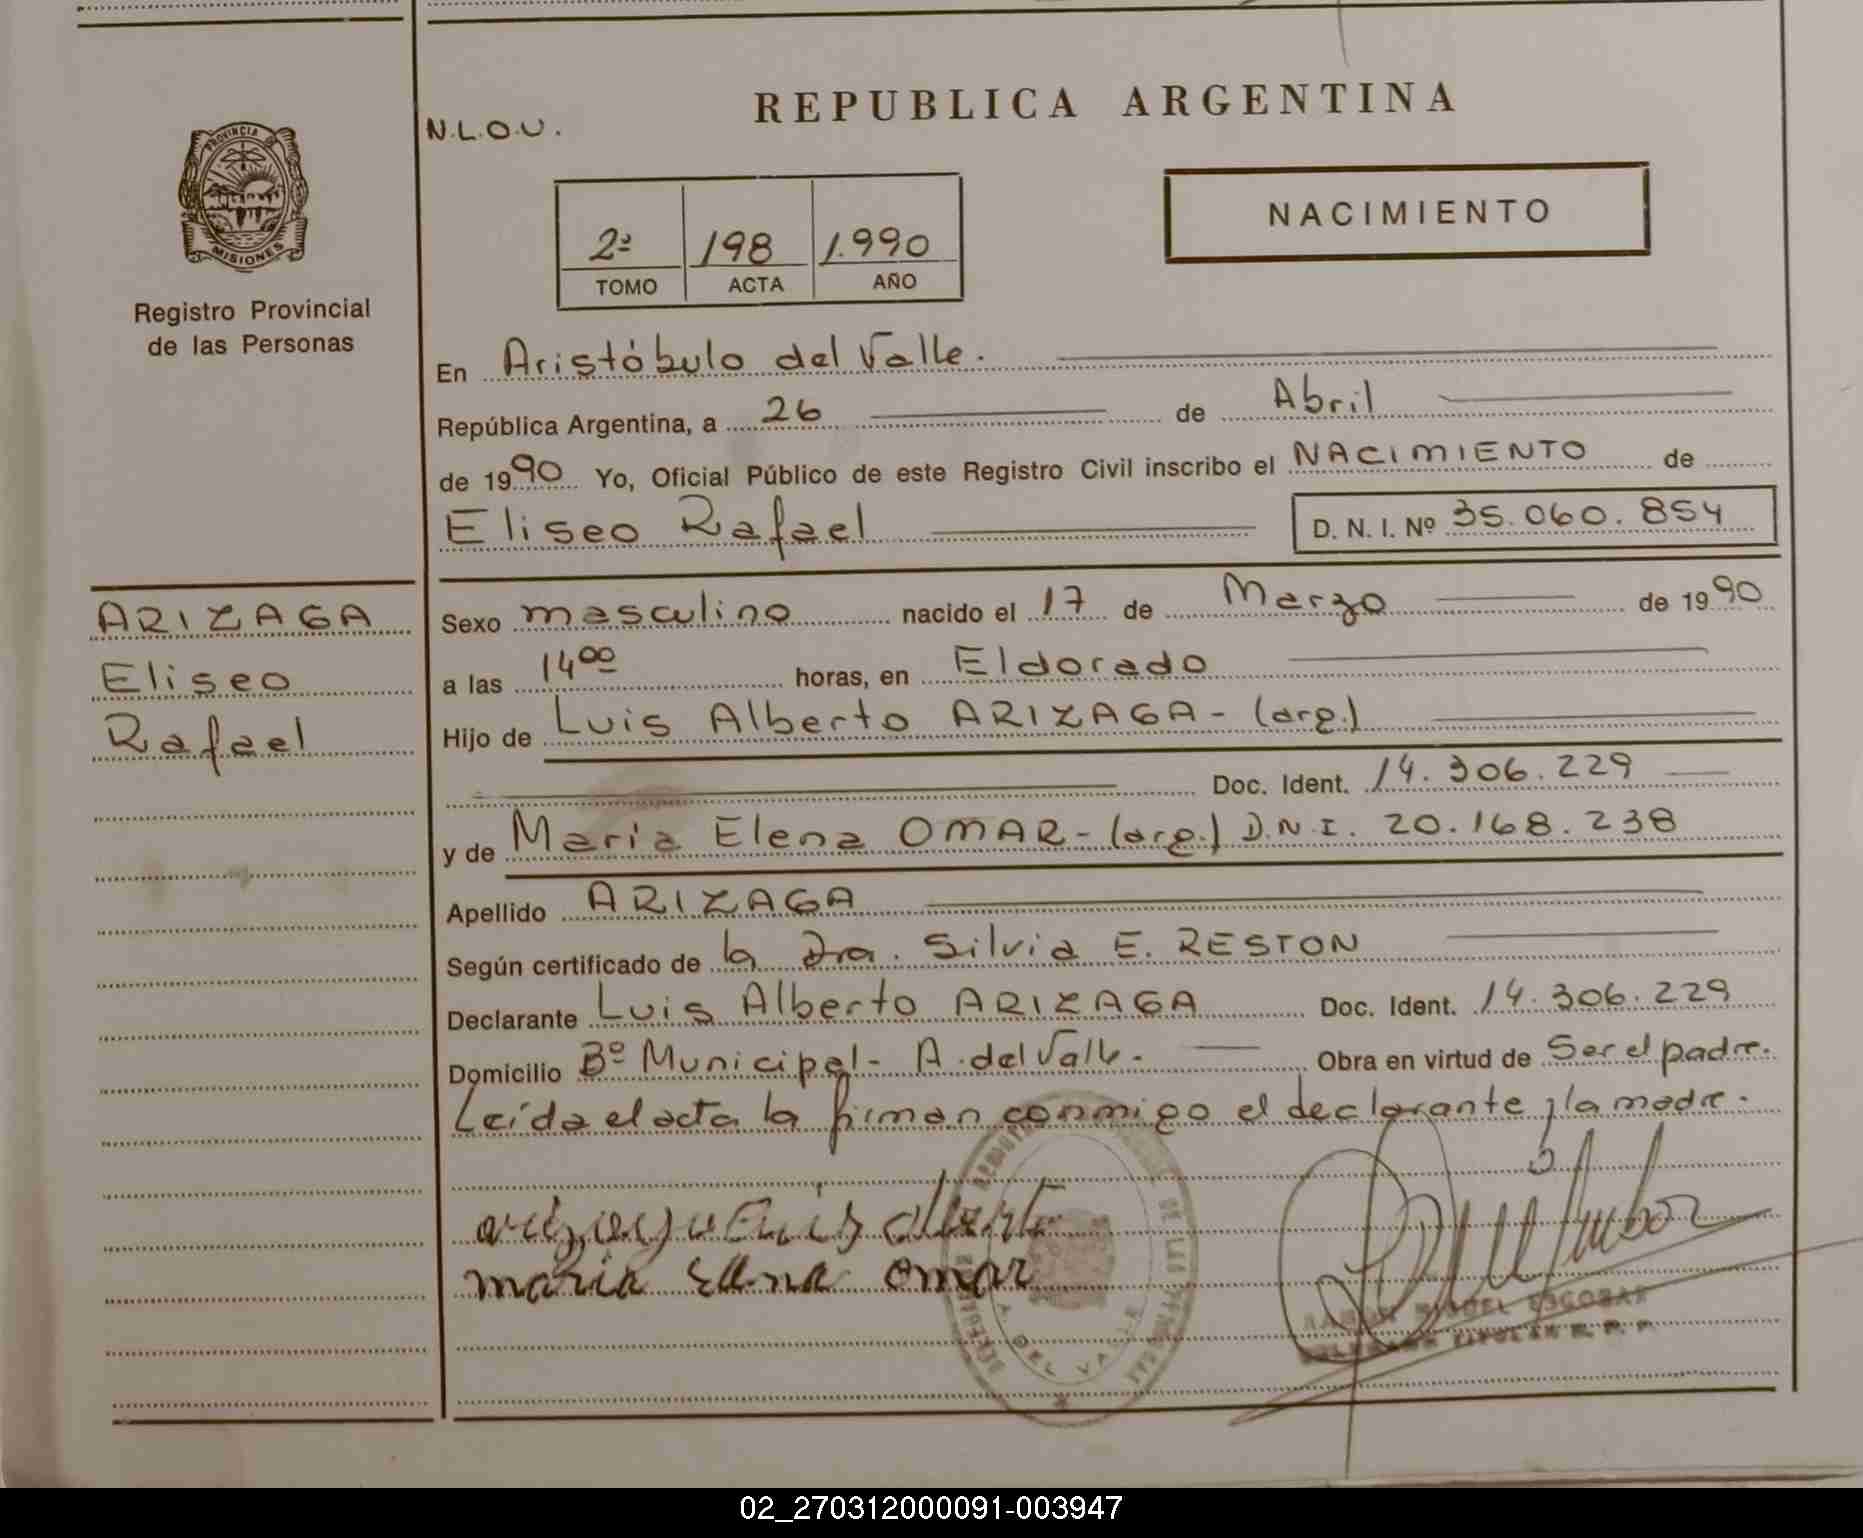 REPUBLICA ARGENTINA
N.L.O.U.
PROVINCIA DE
MISIONES
Registro Provincial
de las Personas
NACIMIENTO
2º 198 1.990
TOMO ACTA AÑO
En Aristóbulo del Valle.
República Argentina, a 26 de Abril
de 1990 Yo, Oficial Público de este Registro Civil inscribo el NACIMIENTO de
Eliseo Rafael D. N. I. Nº 35.060.854
ARIZAGA
Eliseo
Rafael
Sexo masculino nacido el 17 de Marzo de 1990
a las 14⁰⁰ horas, en Eldorado
Hijo de Luis Alberto ARIZAGA - (arg.)
Doc. Ident. 14.306.229
y de María Elena OMAR - (arg.) D.N.I. 20.168.238
Apellido ARIZAGA
Según certificado de la Dra. Silvia E. RESTON
Declarante Luis Alberto ARIZAGA Doc. Ident. 14.306.229
Domicilio Bº Municipal - A. del Valle. Obra en virtud de Ser el padre.
Leída el acta la firman conmigo el declarante y la madre.
maria elena omar
A. DEL VALLE
RAMON MIGUEL ESCOBAR
02_270312000091-003947